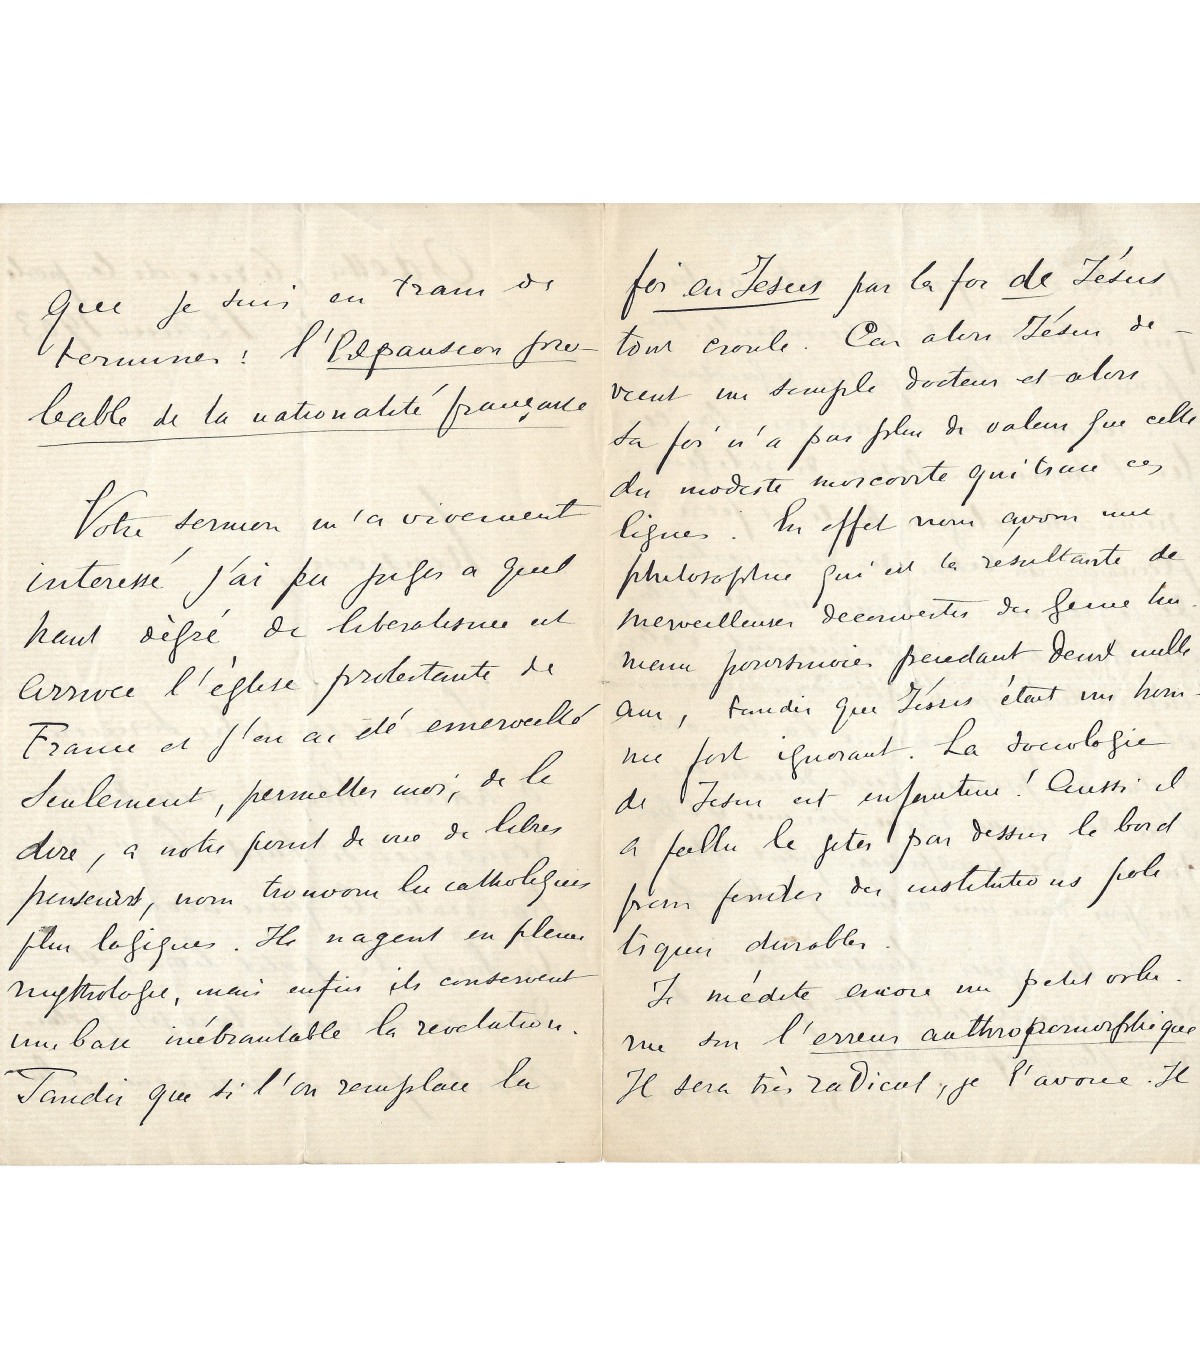 que je suis en train de
terminer : l'Expansion pro-
bable de la nationalité française
Votre sermon m'a vivement
interessé j'ai pu juger a quel
haut dégré de liberalisme est
arrivée l'église protestante de
France et j'en ai été emerveillé
Seulement, permettez moi, de le
dire, a notre point de vue de libres
penseurs, nous trouvons les catholiques
plus logiques. Ils nagent en pleine
mythologie, mais enfin ils conservent
une base inébranlable la revelation.
Tandis que si l'on remplace la
foi en Jesus par la foi de Jésus
tout croule. Car alors Jésus de-
vient un simple docteur et alors
sa foi n'a pas plus de valeur que celle
du modeste moscovite qui trace ces
lignes. En effet nous avons une
philosophie qui est la résultante de
merveilleuses decouvertes du genie hu-
main poursuivies pendant deux mille
ans, tandis que Jésus était un hom-
me fort ignorant. La sociologie
de Jesus est enfantine! Aussi il
a fallu la jeter par dessus le bord
pour fonder des institutions poli
tiques durables.
Je médite encore un petit volu-
me sur l'erreur anthropomorphique
Il sera très radical, je l'avoue. Il